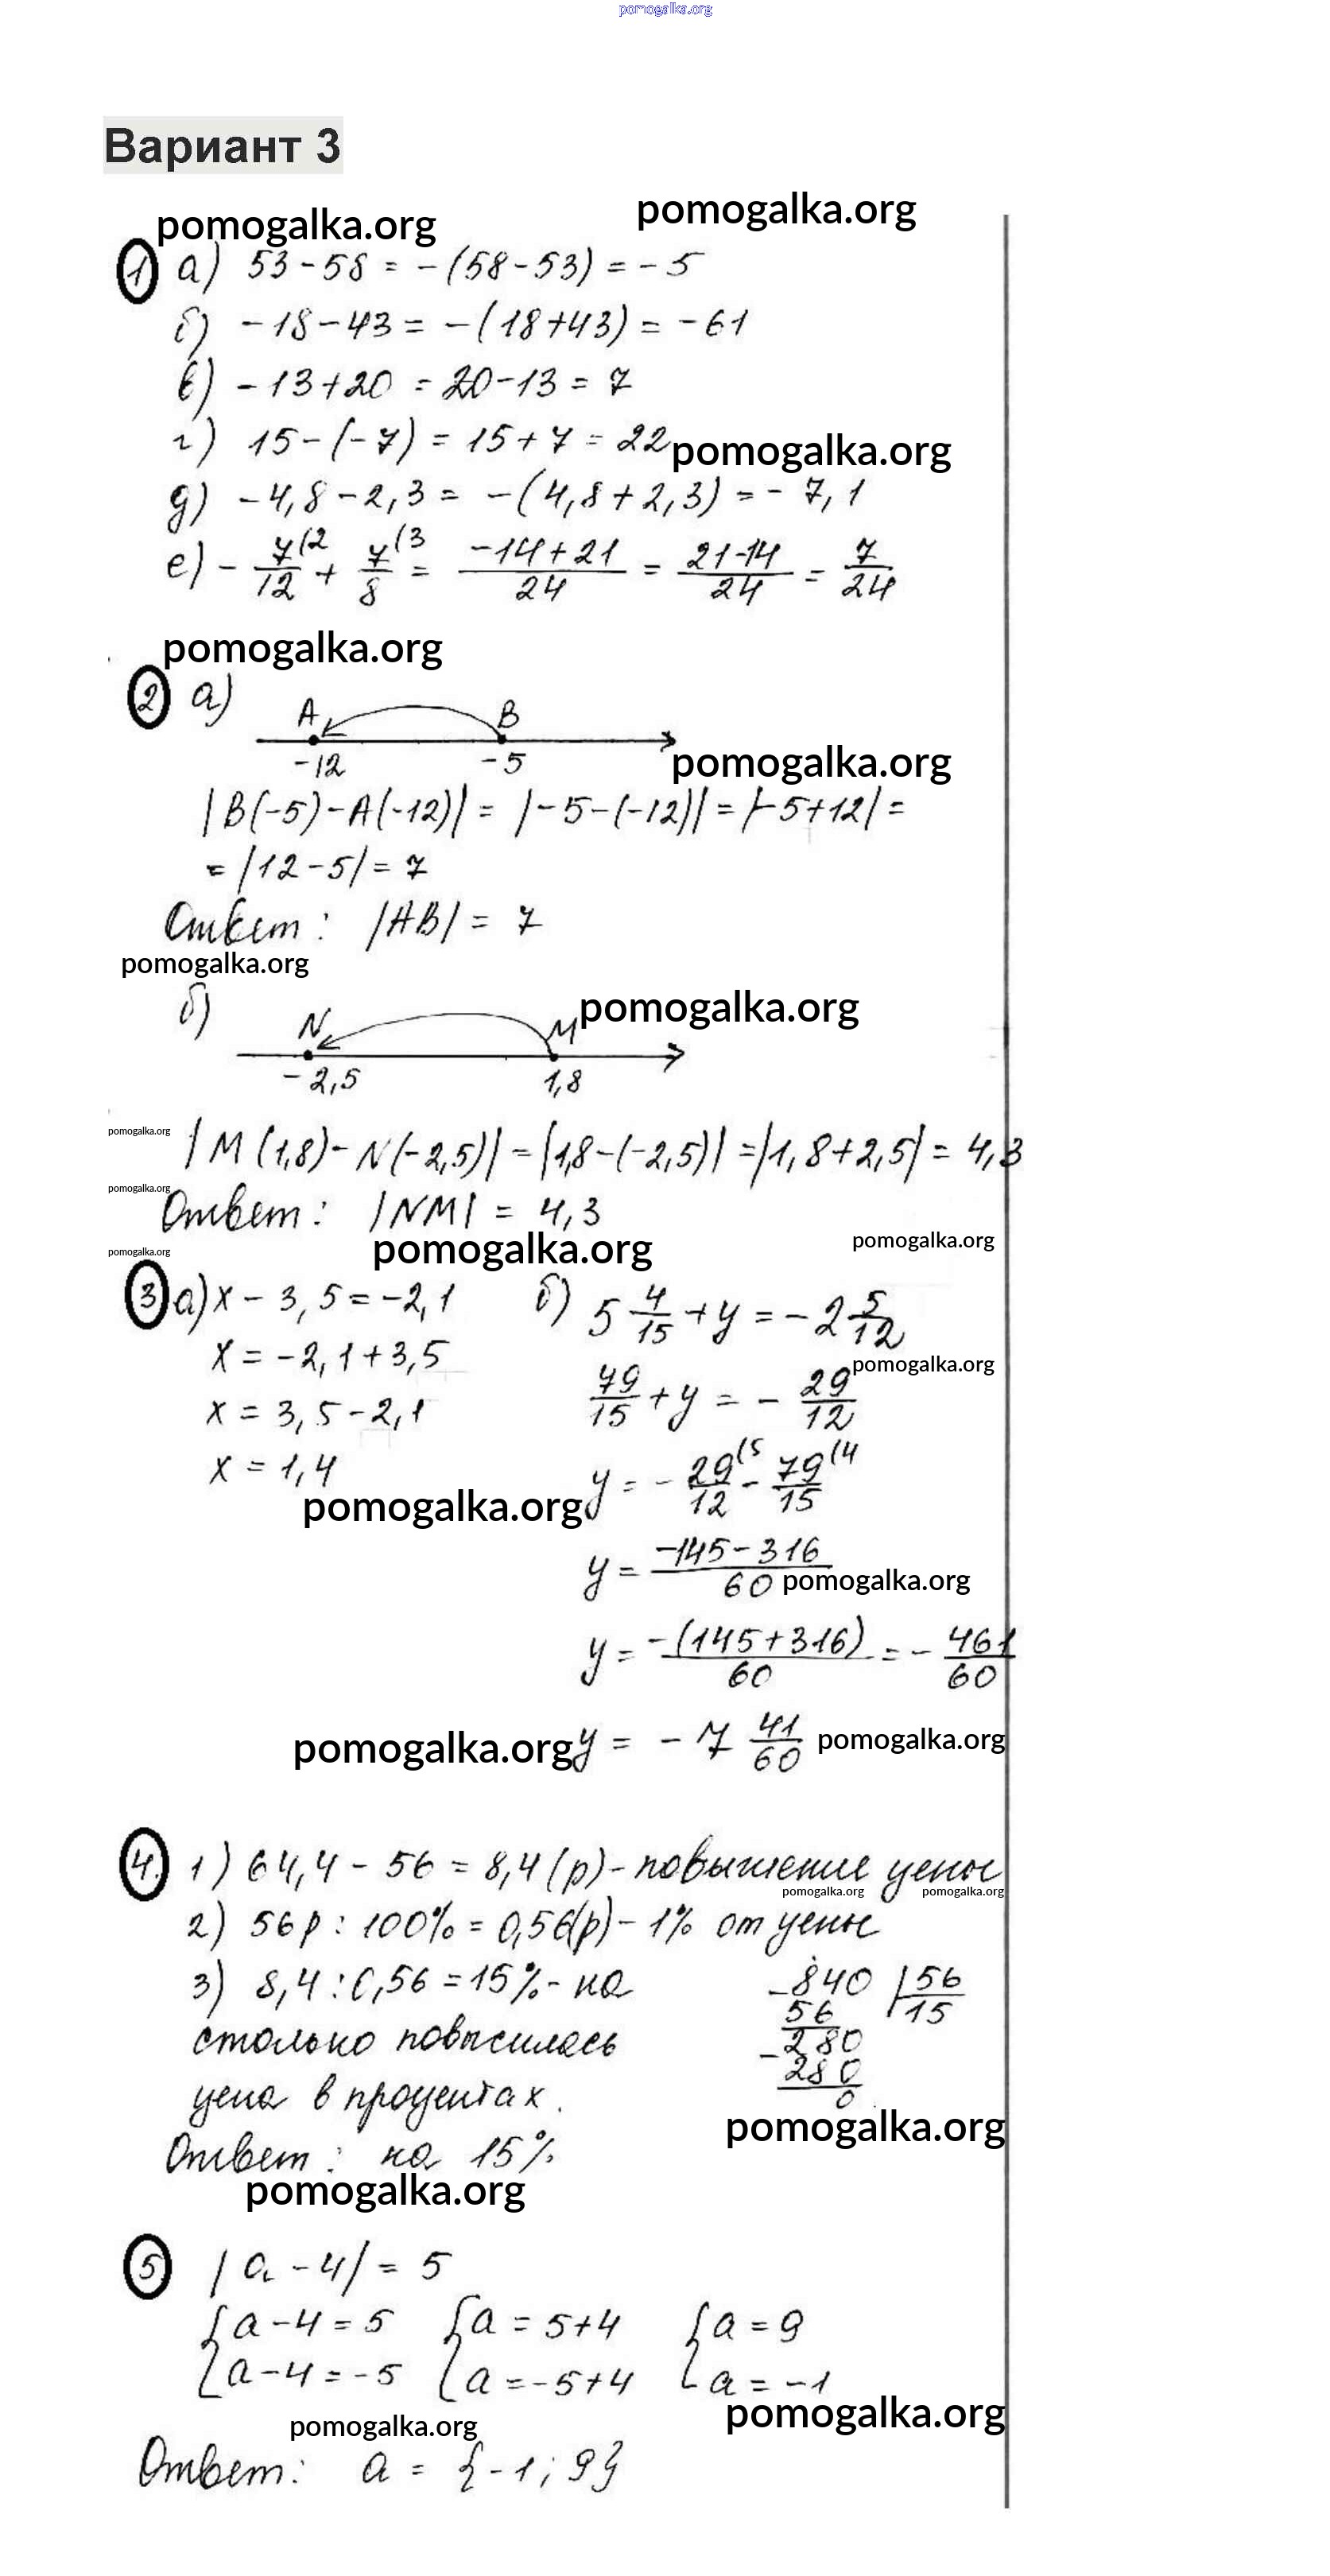 pomogalka.org
Вариант 3
pomogalka.org pomogalka.org
1 а) 53-58 = -(58-53) = -5
б) -18-43 = -(18+43) = -61
в) -13+20 = 20-13 = 7
г) 15-(-7) = 15+7 = 22 pomogalka.org
д) -4,8-2,3 = -(4,8+2,3) = -7,1
е) - 7/12 (2 + 7/8 (3 = -14+21/24 = 21-14/24 = 7/24
pomogalka.org
2 а)
A B
-12 -5 pomogalka.org
|B(-5)-A(-12)| = |-5-(-12)| = |-5+12| =
= |12-5| = 7
Ответ: |AB| = 7
pomogalka.org
б)
N M pomogalka.org
-2,5 1,8
pomogalka.org |M(1,8)-N(-2,5)| = |1,8-(-2,5)| = |1,8+2,5| = 4,3
pomogalka.org
Ответ: |NM| = 4,3
pomogalka.org pomogalka.org pomogalka.org
3 а) x - 3,5 = -2,1 б) 5 4/15 + y = -2 5/12
x = -2,1+3,5 pomogalka.org
79/15 + y = - 29/12
x = 3,5-2,1
x = 1,4 y = - 29/12 (5 - 79/15 (4
pomogalka.org
y = -145-316/60 pomogalka.org
y = -(145+316)/60 = - 461/60
pomogalka.org y = -7 41/60 pomogalka.org
4. 1) 64,4 - 56 = 8,4 (р) - повышение цены
pomogalka.org pomogalka.org
2) 56р : 100% = 0,56(р) - 1% от цены
3) 8,4 : 0,56 = 15% - на
столько повысилась
цена в процентах.
-840 | 56
56 15
-280
280
0
pomogalka.org
Ответ: на 15%
pomogalka.org
5 |a - 4| = 5
{a-4 = 5 {a = 5+4 {a = 9
a-4 = -5 a = -5+4 a = -1
pomogalka.org pomogalka.org
Ответ: a = {-1; 9}